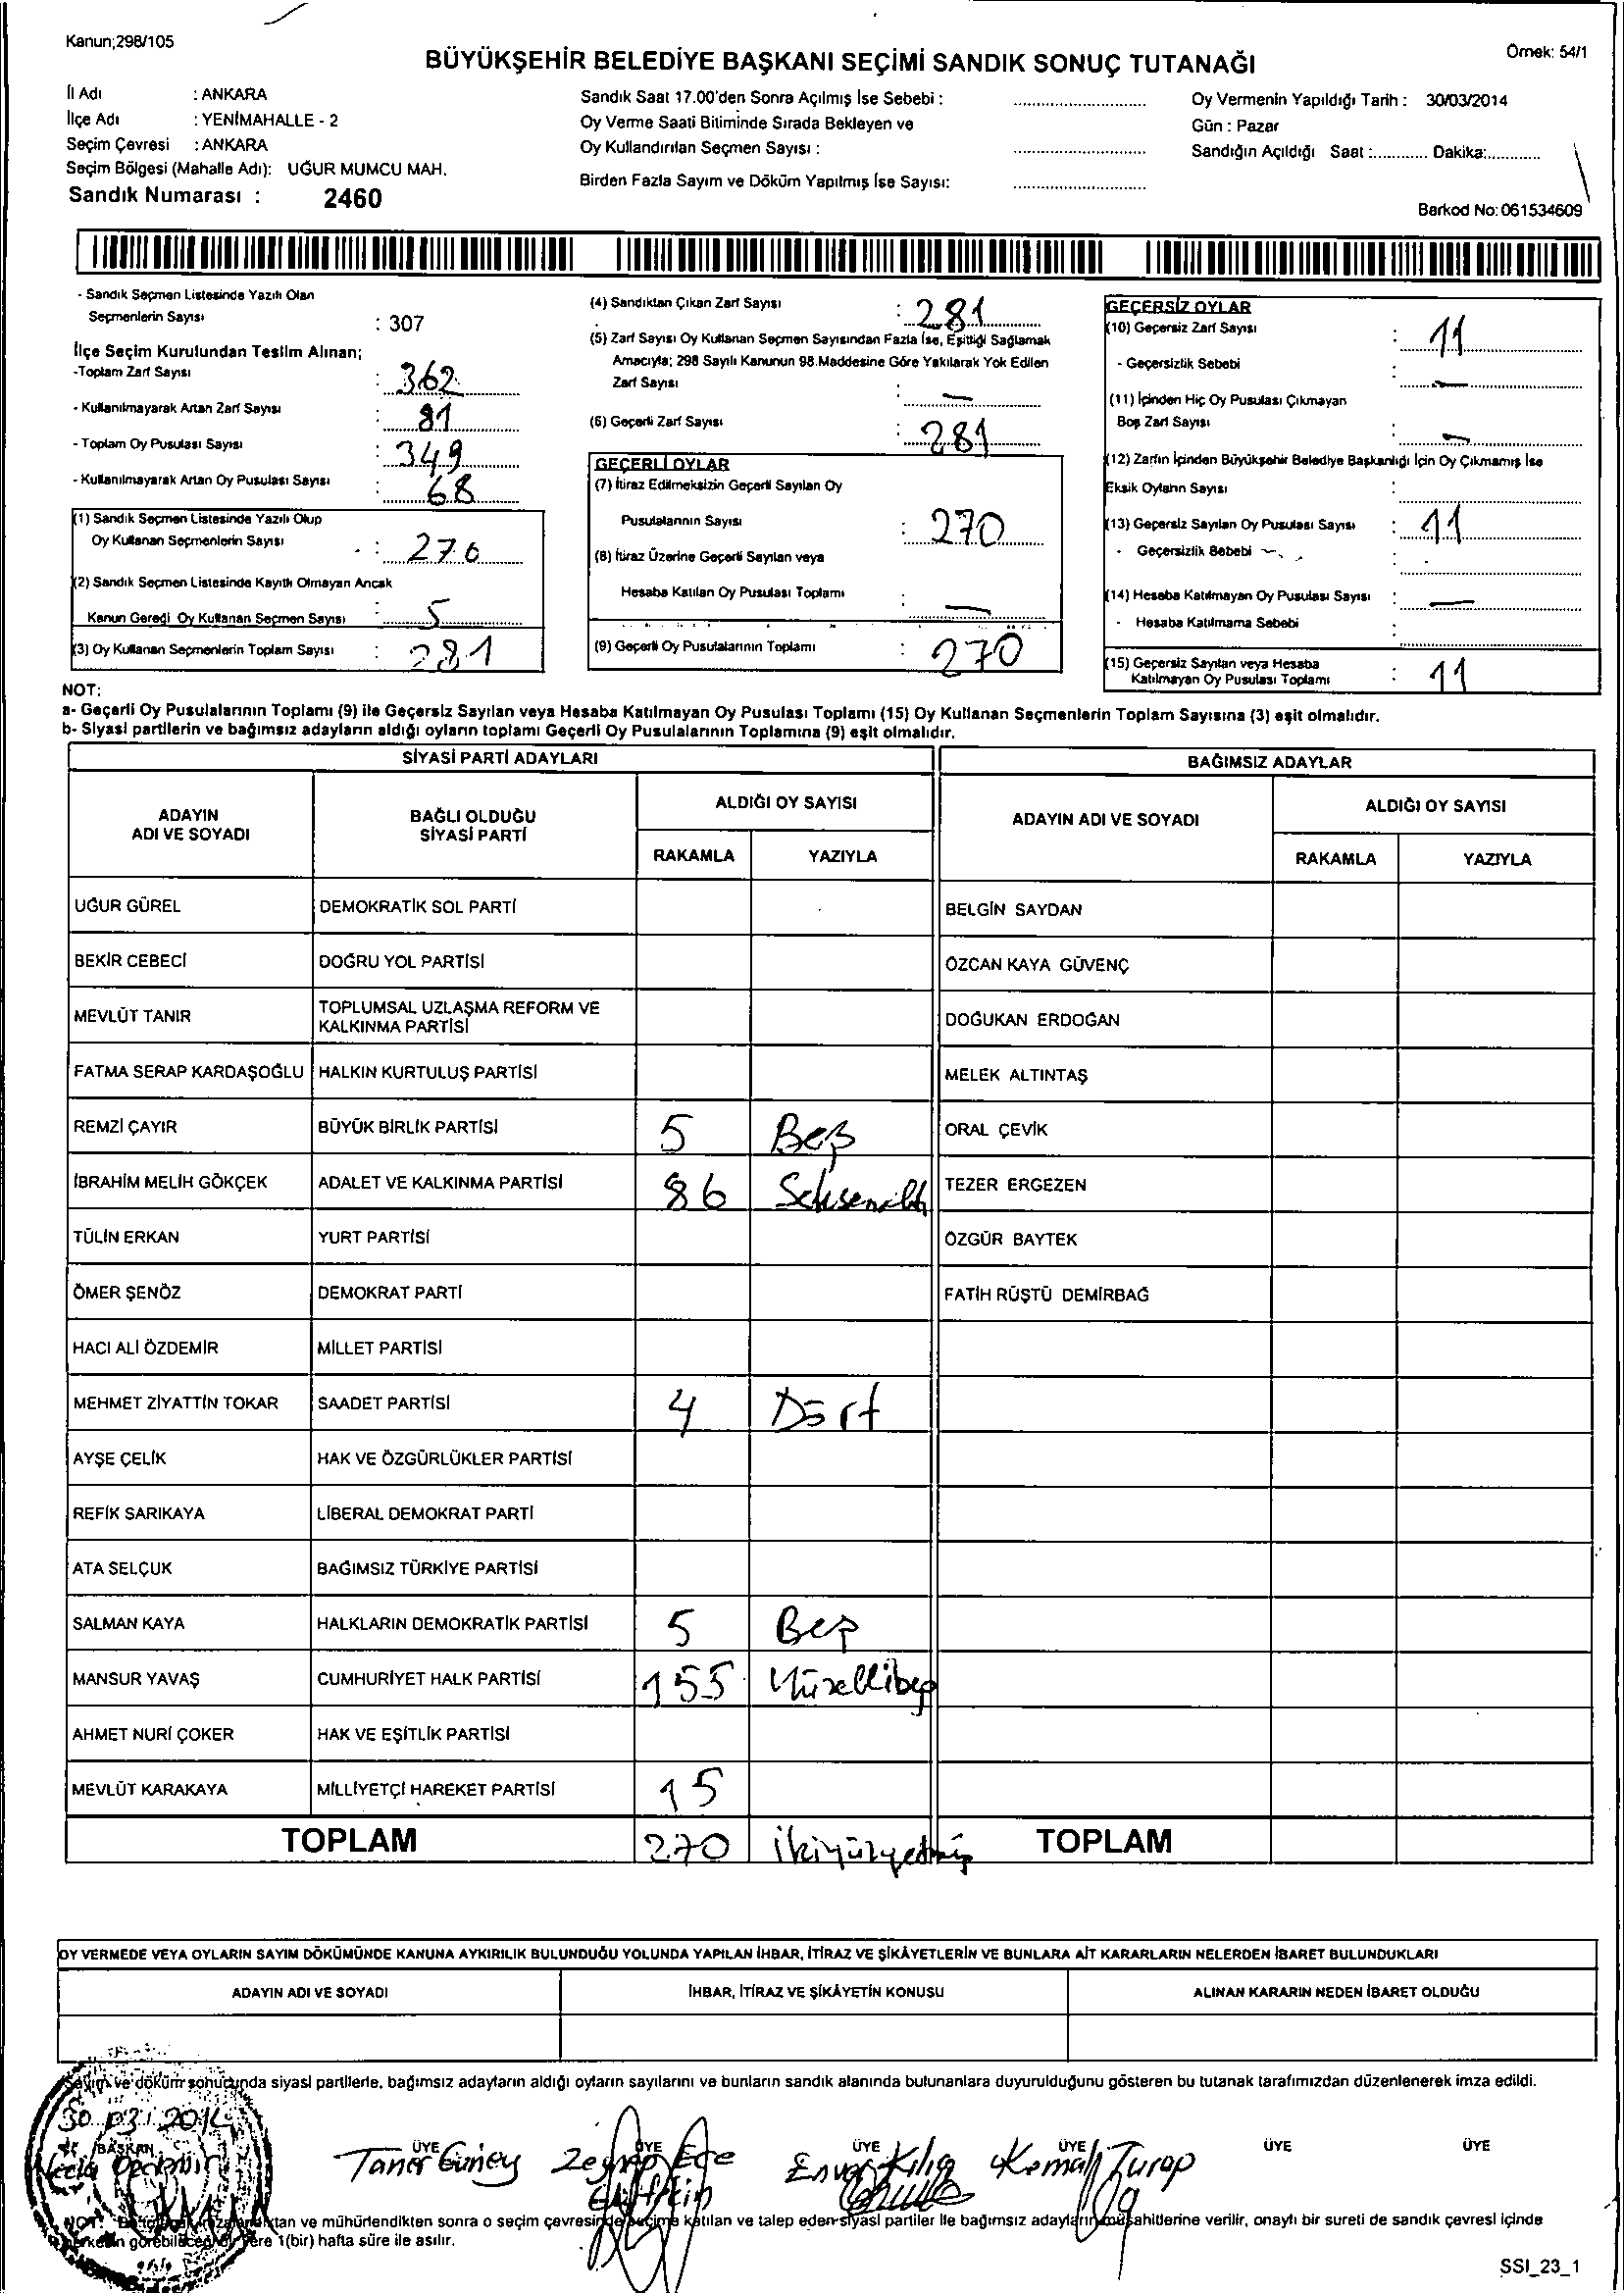 Kanun;298/105
BÜYÜKŞEHİR BELEDİYE BAŞKANI SEÇİMİ SANDIK SONUÇ TUTANAĞI
Örnek: 54/1
İl Adı : ANKARA
İlçe Adı : YENİMAHALLE - 2
Seçim Çevresi : ANKARA
Seçim Bölgesi (Mahalle Adı): UĞUR MUMCU MAH.
Sandık Numarası : 2460
Sandık Saat 17.00'den Sonra Açılmış İse Sebebi :
Oy Verme Saati Bitiminde Sırada Bekleyen ve
Oy Kullandırılan Seçmen Sayısı :
Birden Fazla Sayım ve Döküm Yapılmış İse Sayısı:
Oy Vermenin Yapıldığı Tarih : 30/03/2014
Gün : Pazar
Sandığın Açıldığı Saat :............ Dakika:............
Barkod No: 061534609
- Sandık Seçmen Listesinde Yazılı Olan
Seçmenlerin Sayısı : 307
İlçe Seçim Kurulundan Teslim Alınan;
-Toplam Zarf Sayısı : 362
- Kullanılmayarak Artan Zarf Sayısı : 81
- Toplam Oy Pusulası Sayısı : 349
- Kullanılmayarak Artan Oy Pusulası Sayısı : 68
(1) Sandık Seçmen Listesinde Yazılı Olup
Oy Kullanan Seçmenlerin Sayısı : 276
(2) Sandık Seçmen Listesinde Kayıtlı Olmayan Ancak
Kanun Gereği Oy Kullanan Seçmen Sayısı : 5
(3) Oy Kullanan Seçmenlerin Toplam Sayısı : 281
(4) Sandıktan Çıkan Zarf Sayısı : 281
(5) Zarf Sayısı Oy Kullanan Seçmen Sayısından Fazla İse, Eşitliği Sağlamak
Amacıyla; 298 Sayılı Kanunun 98.Maddesine Göre Yakılarak Yok Edilen
Zarf Sayısı : —
(6) Geçerli Zarf Sayısı : 281
GEÇERLİ OYLAR
(7) İtiraz Edilmeksizin Geçerli Sayılan Oy
Pusulalarının Sayısı : 270
(8) İtiraz Üzerine Geçerli Sayılan veya
Hesaba Katılan Oy Pusulası Toplamı : —
(9) Geçerli Oy Pusulalarının Toplamı : 270
GEÇERSİZ OYLAR
(10) Geçersiz Zarf Sayısı : 11
- Geçersizlik Sebebi : —
(11) İçinden Hiç Oy Pusulası Çıkmayan
Boş Zarf Sayısı : —
(12) Zarfın İçinden Büyükşehir Belediye Başkanlığı İçin Oy Çıkmamış İse
Eksik Oyların Sayısı :
(13) Geçersiz Sayılan Oy Pusulası Sayısı : 11
- Geçersizlik Sebebi :
(14) Hesaba Katılmayan Oy Pusulası Sayısı : —
- Hesaba Katılmama Sebebi :
(15) Geçersiz Sayılan veya Hesaba
Katılmayan Oy Pusulası Toplamı : 11
NOT:
a- Geçerli Oy Pusulalarının Toplamı (9) ile Geçersiz Sayılan veya Hesaba Katılmayan Oy Pusulası Toplamı (15) Oy Kullanan Seçmenlerin Toplam Sayısına (3) eşit olmalıdır.
b- Siyasi partilerin ve bağımsız adayların aldığı oyların toplamı Geçerli Oy Pusulalarının Toplamına (9) eşit olmalıdır.
SİYASİ PARTİ ADAYLARI
ADAYIN
ADI VE SOYADI
BAĞLI OLDUĞU
SİYASİ PARTİ
ALDIĞI OY SAYISI
RAKAMLA YAZIYLA
UĞUR GÜREL DEMOKRATİK SOL PARTİ
BEKİR CEBECİ DOĞRU YOL PARTİSİ
MEVLÜT TANIR TOPLUMSAL UZLAŞMA REFORM VE
KALKINMA PARTİSİ
FATMA SERAP KARDAŞOĞLU HALKIN KURTULUŞ PARTİSİ
REMZİ ÇAYIR BÜYÜK BİRLİK PARTİSİ 5 Beş
İBRAHİM MELİH GÖKÇEK ADALET VE KALKINMA PARTİSİ 86 Seksenaltı
TÜLİN ERKAN YURT PARTİSİ
ÖMER ŞENÖZ DEMOKRAT PARTİ
HACI ALİ ÖZDEMİR MİLLET PARTİSİ
MEHMET ZİYATTİN TOKAR SAADET PARTİSİ 4 Dört
AYŞE ÇELİK HAK VE ÖZGÜRLÜKLER PARTİSİ
REFİK SARIKAYA LİBERAL DEMOKRAT PARTİ
ATA SELÇUK BAĞIMSIZ TÜRKİYE PARTİSİ
SALMAN KAYA HALKLARIN DEMOKRATİK PARTİSİ 5 Beş
MANSUR YAVAŞ CUMHURİYET HALK PARTİSİ 155 Yüzellibeş
AHMET NURİ ÇOKER HAK VE EŞİTLİK PARTİSİ
MEVLÜT KARAKAYA MİLLİYETÇİ HAREKET PARTİSİ 15
TOPLAM 270 ikiyüzyetmiş
BAĞIMSIZ ADAYLAR
ADAYIN ADI VE SOYADI
ALDIĞI OY SAYISI
RAKAMLA YAZIYLA
BELGİN SAYDAN
ÖZCAN KAYA GÜVENÇ
DOĞUKAN ERDOĞAN
MELEK ALTINTAŞ
ORAL ÇEVİK
TEZER ERGEZEN
ÖZGÜR BAYTEK
FATİH RÜŞTÜ DEMİRBAĞ
TOPLAM
OY VERMEDE VEYA OYLARIN SAYIM DÖKÜMÜNDE KANUNA AYKIRILIK BULUNDUĞU YOLUNDA YAPILAN İHBAR, İTİRAZ VE ŞİKÂYETLERİN VE BUNLARA AİT KARARLARIN NELERDEN İBARET BULUNDUKLARI
ADAYIN ADI VE SOYADI İHBAR, İTİRAZ VE ŞİKÂYETİN KONUSU ALINAN KARARIN NEDEN İBARET OLDUĞU
Sayım ve döküm sonucunda siyasi partilerle, bağımsız adayların aldığı oyların sayılarını ve bunların sandık alanında bulunanlara duyurulduğunu gösteren bu tutanak tarafımızdan düzenlenerek imza edildi.
30.03.2014
BAŞKAN ÜYE ÜYE ÜYE ÜYE ÜYE ÜYE
Taner Güney Zeynep Ece Enver Kılıç Kemal Turap
ve mühürlendikten sonra o seçim çevresinde seçime katılan ve talep eden siyasi partiler ile bağımsız adayların müşahitlerine verilir, onaylı bir sureti de sandık çevresi içinde
herkesin görebileceği bir yere 1(bir) hafta süre ile asılır.
SSI_23_1